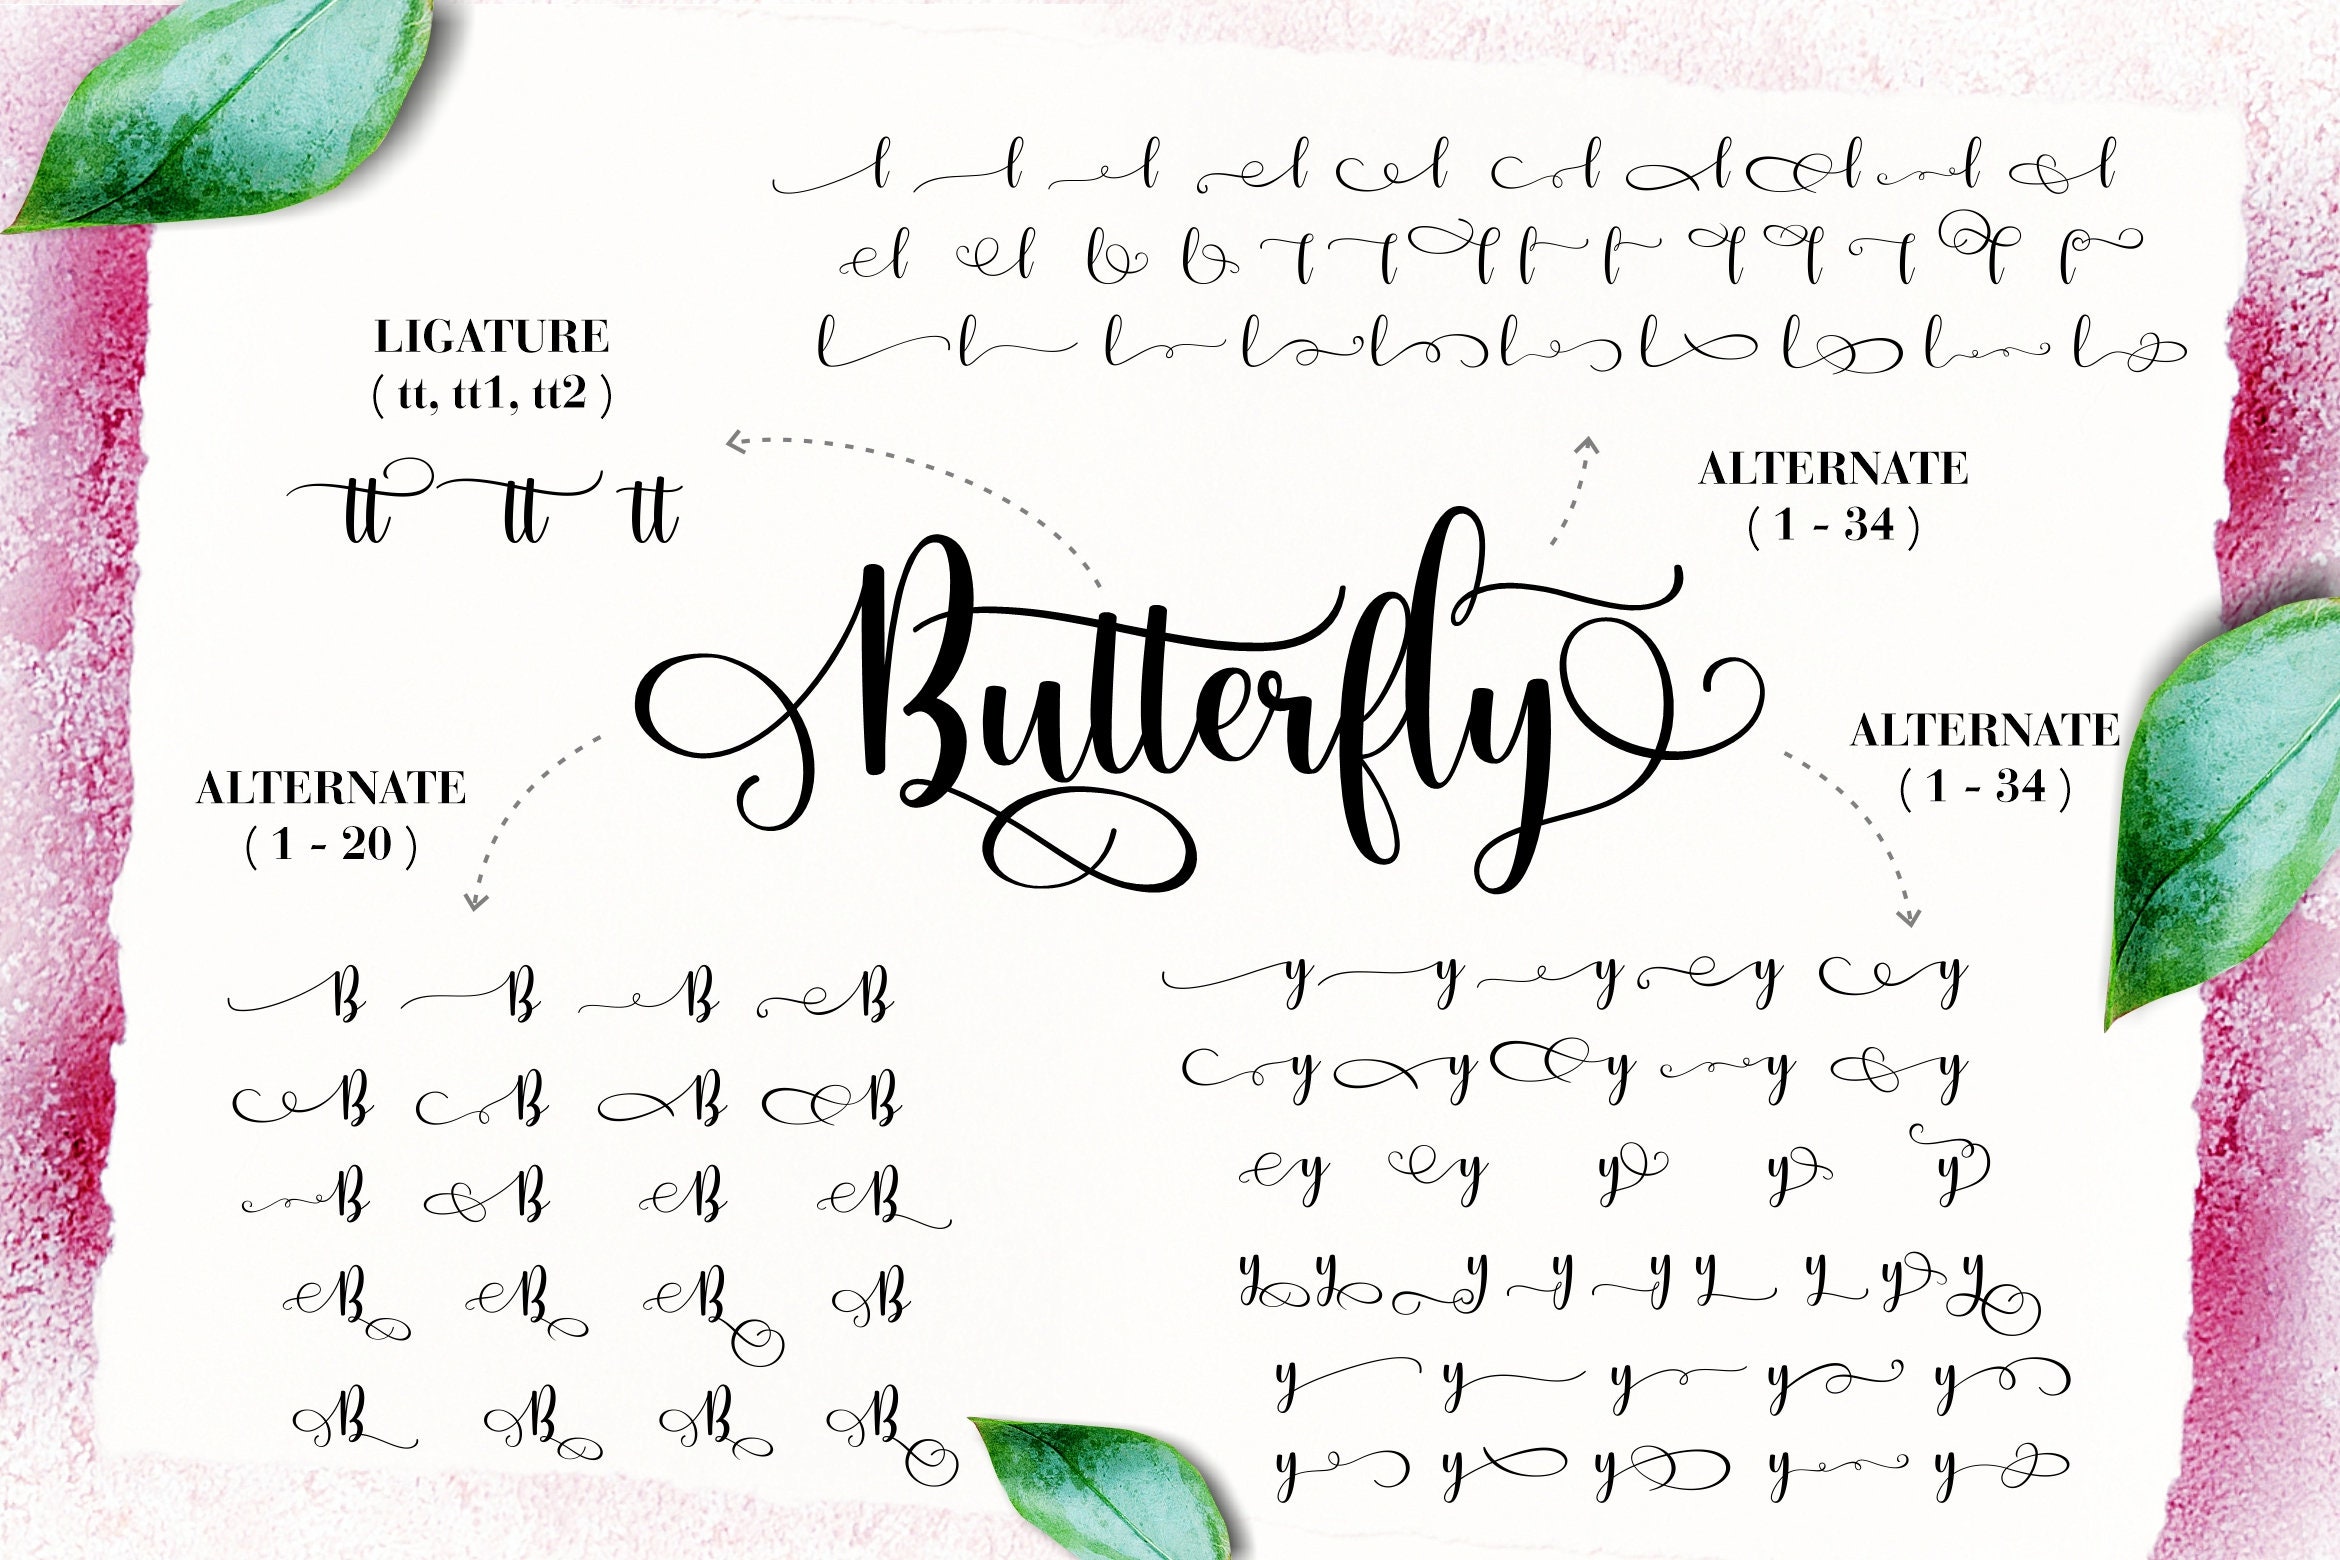 l l l l l l l l l l
l l l l l l l l l l l l l l
l l l l l l l l l l
LIGATURE
( tt, tt1, tt2 )
tt tt tt
ALTERNATE
( 1 - 34 )
Butterfly
ALTERNATE
( 1 - 34 )
ALTERNATE
( 1 - 20 )
B B B B
B B B B
B B B B
B B B B
B B B B
y y y y y
y y y y y
y y y y y
y y y y y y y y y
y y y y y
y y y y y